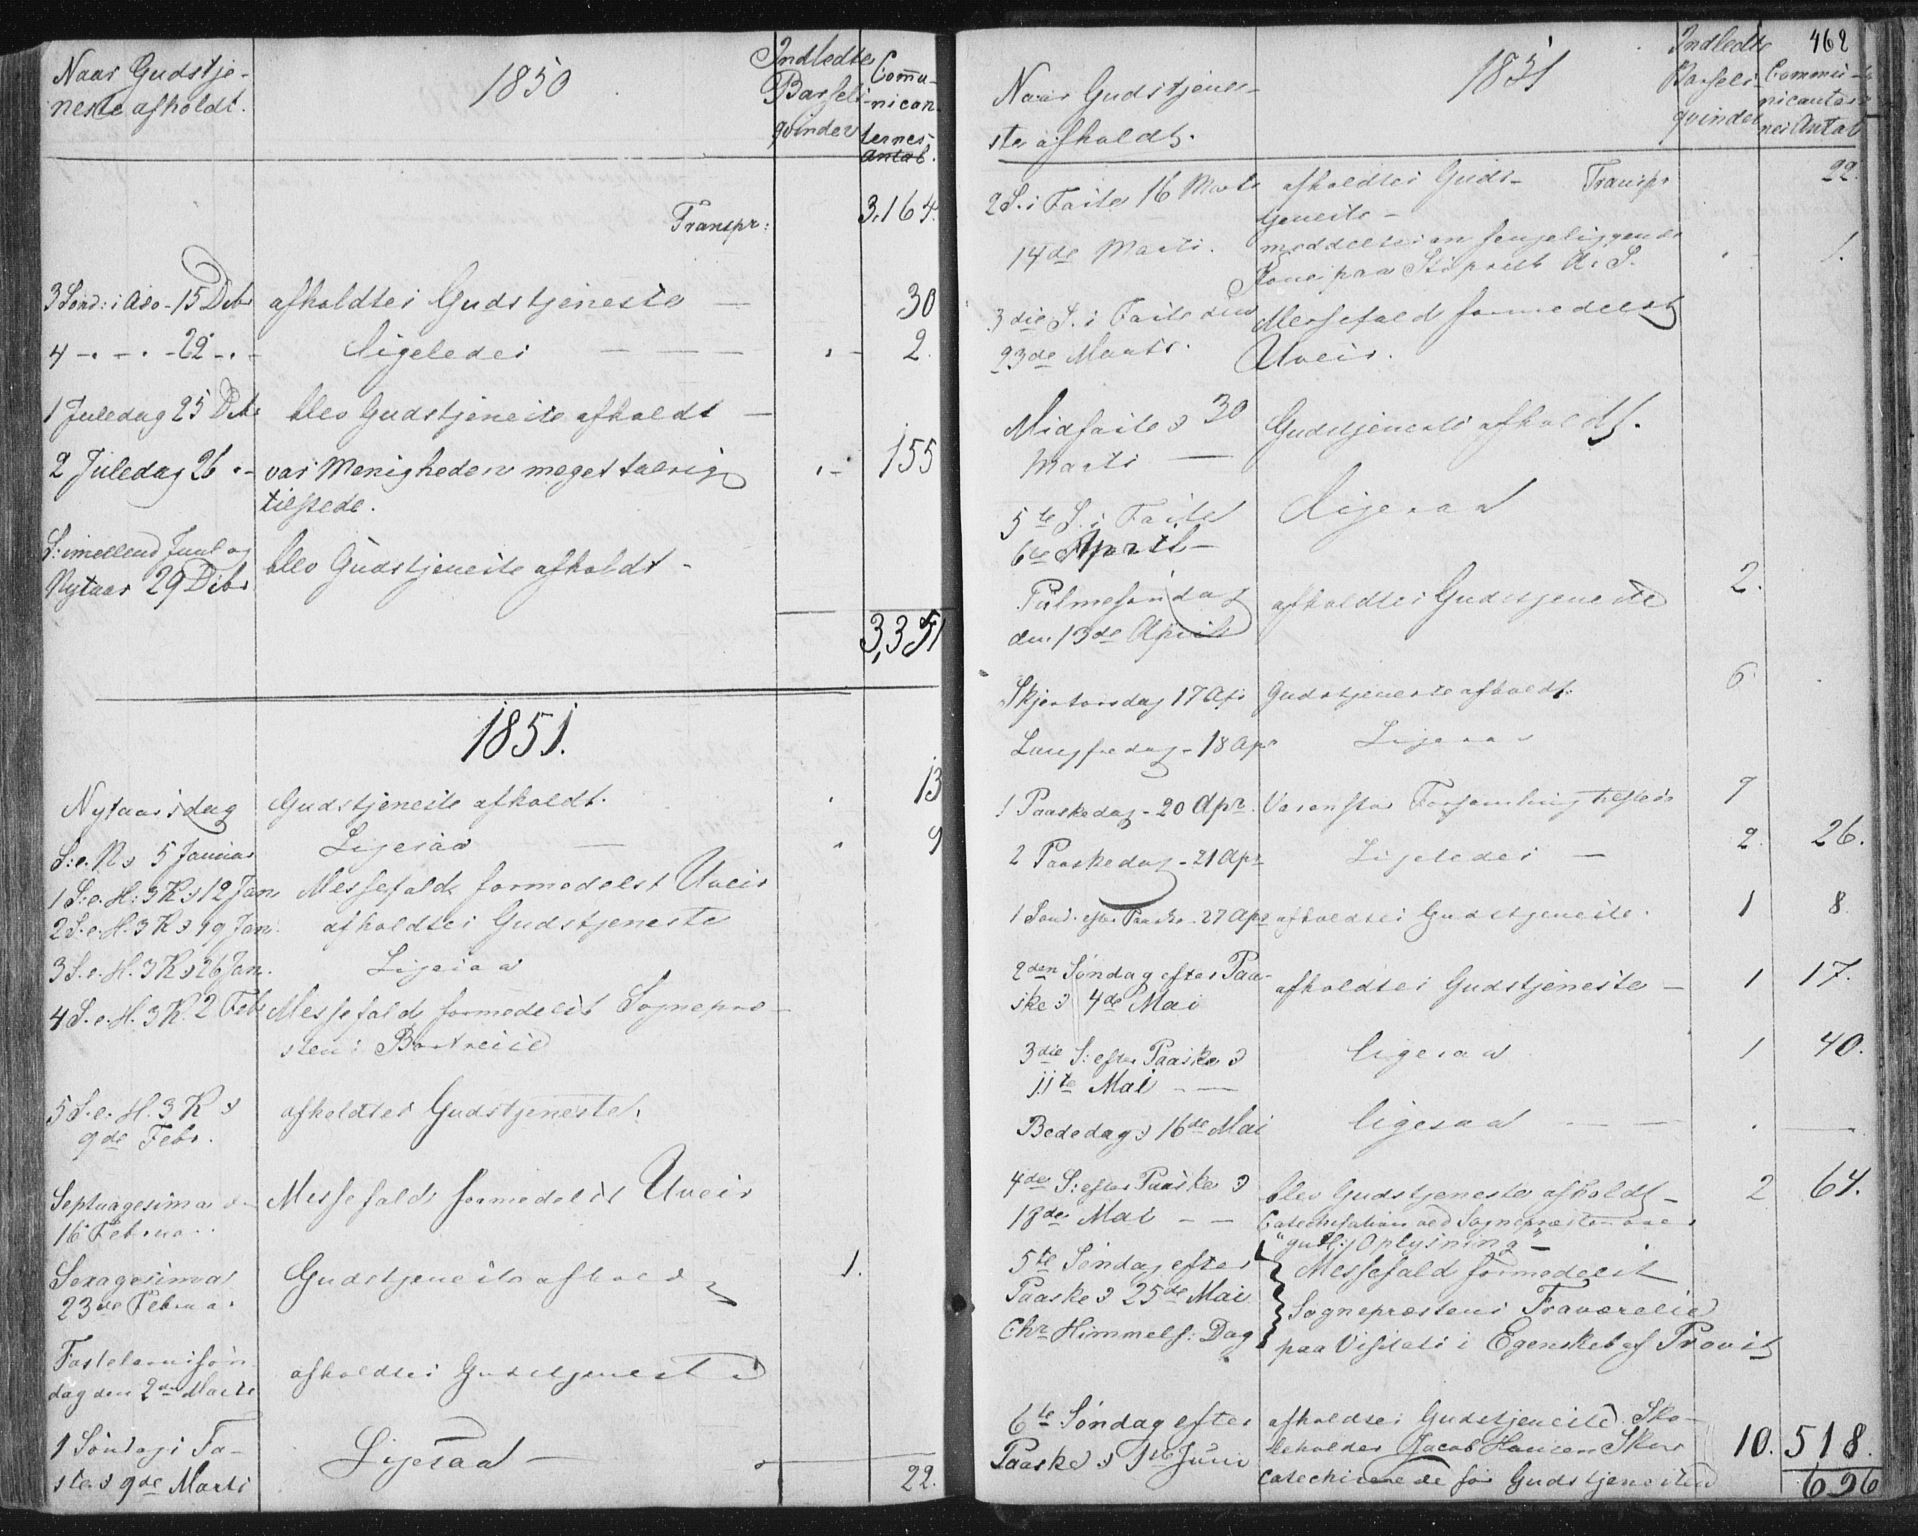 Naar Gudstje-
neste afholdt.
1850
Indledte
Barsel-
qvinder
Commu-
nican-
ternes
Antal.
Transpr:
3,164.
3 Sönd: i Adv. 15 Decbr afholdtes Gudstjeneste — 30
4 - - - 22 - - ligeledes — — — - 2.
1 Juledag 25 Decbr blev Gudstjeneste afholdt —
2 Juledag 26 - - var Menigheden meget talrig - 155
tilstede.
S: imellem Juul og
Nytaar 29 Decbr blev Gudstjeneste afholdt -
3,351
1851.
Nytaarsdag Gudstjeneste afholdt. 13
S: e. N: 5 Januar Ligesaa — 9
1 S. e. H. 3 K. 12 Jan. Messefald formedelst Uveir
2 S. e. H. 3 K. 19 Jan. afholdtes Gudstjeneste
3 S. e. H. 3 K. 26 Jan. Ligesaa
4 S. e. H. 3 K. 2 Febr Messefald formedelst Sognepræ-
stens Bortreise
5 S. e. H. 3 K. afholdtes Gudstjeneste.
9de Febr.
Septuagesima Messefald formedelst Uveir
16 Februar
Sexagesima Gudstjeneste afholdt 1.
23de Februar
Fastelavnssön-
dag den 2den Marts afholdtes Gudstjeneste
1 Söndag i Fa- Ligesaa —
ste 9de Marts 22.
462
Naar Gudstjene-
ste afholdt.
1851
Indledte
Barsel-
qvinder
Commu-
nicanter-
nes Antal
2 S. i Faste 16 Marts afholdtes Guds- Transpr 22.
tjeneste -
14de Marts. meddeltes en sengeliggende 1.
Kone paa A. S.
3die S. i Faste den Messefald formedelst
23de Marts. Uveir.
Midfaste 30 Gudstjeneste afholdt.
Marts —
5te S. i Faste Ligesaa
6te April -
Palmesöndag afholdtes Gudstjeneste 2.
den 13de April
Skjertorsdag 17 Apr Gudstjeneste afholdt. 6
Langfredag - 18 Apr Ligesaa
1 Paaskedag - 20 Apr. Var en stor Forsamling tilstede 7
2 Paaskedag - 21 Apr Ligeledes — 2. 26.
1 Sönd. efter Paaske - 27 Apr afholdtes Gudstjeneste. 1 8
2den Söndag efter Paa-
ske 4de Mai afholdtes Gudstjeneste — 1 17.
3die S: efter Paaske ligesaa 1 40.
11te Mai - —
Bededag 16de Mai ligesaa — — . —
4de S: efter Paaske blev Gudstjeneste afholdt - 2 64.
18de Mai - — Catechisation ved Sognepræsten over
"gudl: Oplysning" -
5te Söndag efter Messefald formedelst
Paaske 25de Mai Sognepræstens Fraværelse
Chr. Himmelf: Dag paa Visitats i Egenskab af Provst
6te Söndag efter afholdtes Gudstjeneste. Sko-
Paaske 1ste Juni leholder Jacob Hansen 10. 518.
catechiserede før Gudstjenesten 696